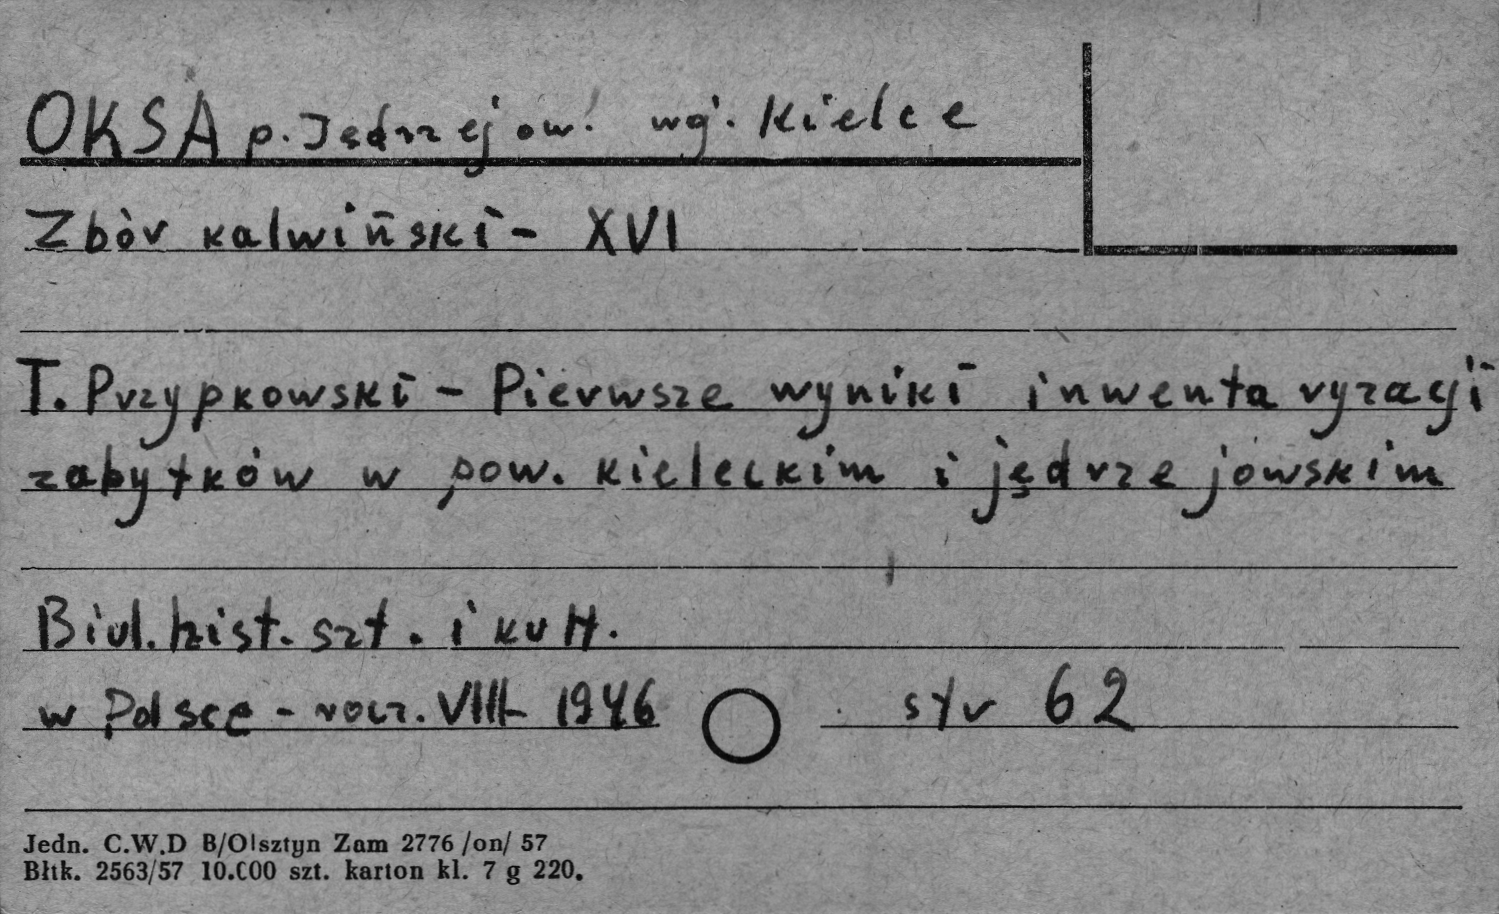 OKSA p. Jędrzejow. woj. Kielce
Zbór kalwiński - XVI
T. Przypkowski - Pierwsze wyniki inwentaryzacji
zabytków w pow. kieleckim i jędrzejowskim
Biul. hist. szt. i kult.
w Polsce - rocz. VIII - 1946 str 62
Jedn. C.W.D B/Olsztyn Zam 2776 /on/ 57
Błtk. 2563/57 10.000 szt. karton kl. 7 g 220.